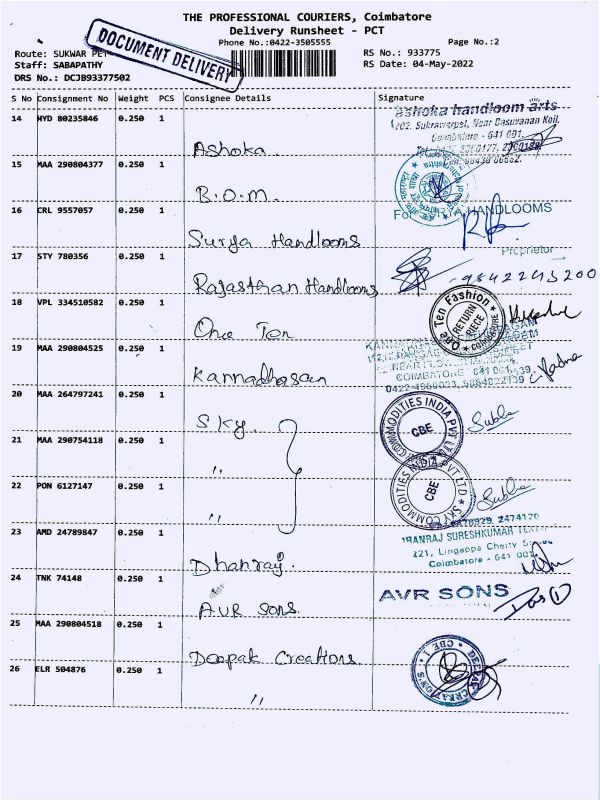 THE PROFESSIONAL COURIERS, Coimbatore
Delivery Runsheet - PCT
Phone No.:0422-3505555 Page No.:2
DOCUMENT DELIVERY
Route: SUKWAR PET RS No.: 933775
Staff: SABAPATHY RS Date: 04-May-2022
DRS No.: DCJB93377502
S No Consignment No Weight PCS Consignee Details Signature
14 HYD 80235846 0.250 1 Ashoka
ashoka handloom arts
Coimbatore - 641 001.
15 MAA 290804377 0.250 1 B.O.M.
16 CRL 9557057 0.250 1 Surya Handlooms
HANDLOOMS
Proprietor
17 STY 780356 0.250 1 Rajasthan Handlooms
9842245200
18 VPL 334510582 0.250 1 One Ten
One Ten Fashion
RETURN
PIECE
COIMBATORE
19 MAA 290804525 0.250 1 Kannadhasan
COIMBATORE
20 MAA 264797241 0.250 1 Sky.
COMMODITIES INDIA PVT LTD
CBE
Subla
21 MAA 290754118 0.250 1 "
SKY COMMODITIES INDIA PVT LTD
CBE
Subla
22 PON 6127147 0.250 1 "
2474126
23 AMD 24789847 0.250 1 Dhanraj.
SURESHKUMAR
221, Lingappa Chetty
Coimbatore - 641 001.
24 TNK 74148 0.250 1 AVR Sons.
AVR SONS
25 MAA 290804518 0.250 1 Deepak Creations
26 ELR 504876 0.250 1 "
DEEPAK CREATIONS
CBE 1